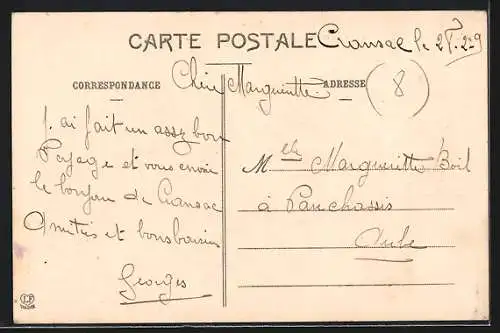 CARTE POSTALE
Cransac le
CORRESPONDANCE
ADRESSE
8
Chère Margueritte
J. ai fait un assez bon
Voyage et vous envoi
le bonjour de Cransac
Amitiés et bons baisers
Georges
Melle Marguerittes Boil
à Panchassis
Aube